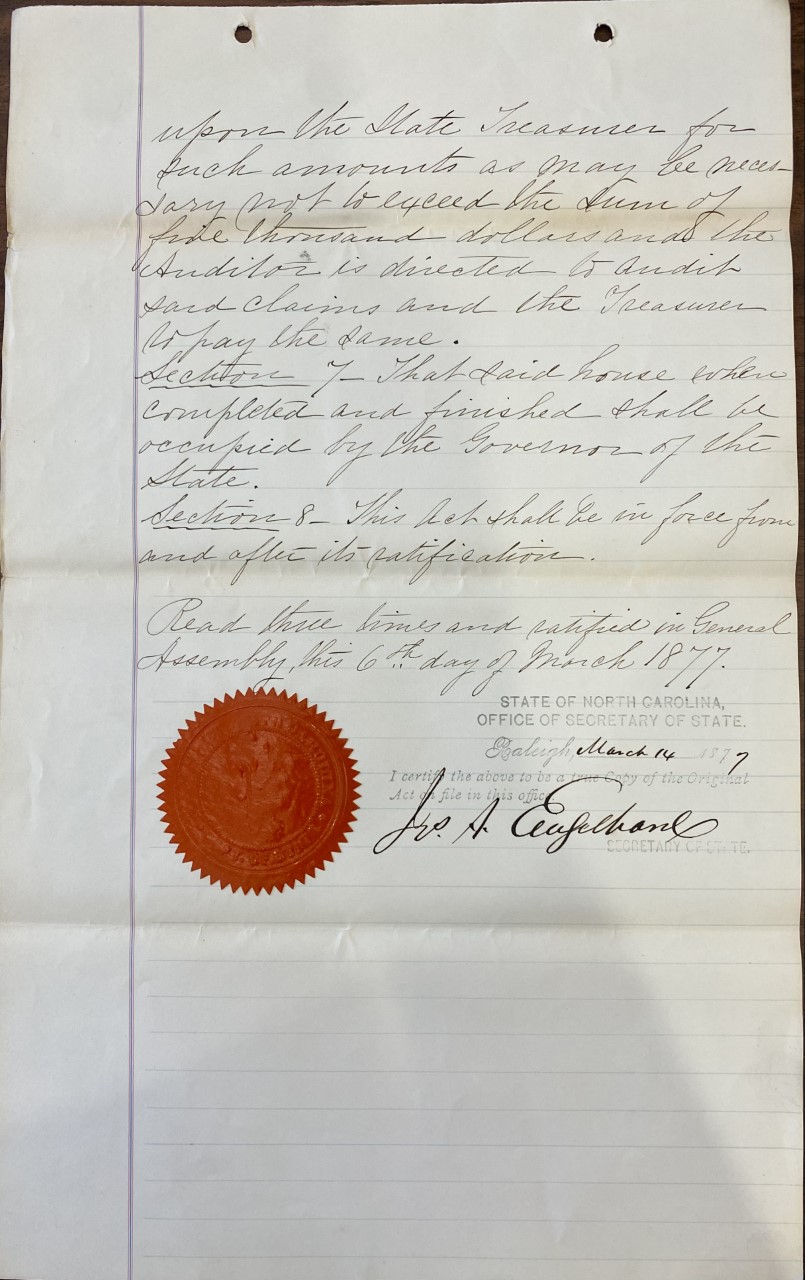 upon the State Treasurer for
such amounts as may be neces-
sary not to exceed the sum of
five thousand dollars and the
Auditor is directed to audit
said claims and the Treasurer
to pay the same.
Section 7- That said house when
completed and finished shall be
occupied by the Governor of the
State.
Section 8- This Act shall be in force from
and after its ratification.
Read three times and ratified in General
Assembly, this 6th day of March 1877.
STATE OF NORTH CAROLINA,
OFFICE OF SECRETARY OF STATE.
Raleigh, March 14 1877
I certify the above to be a true Copy of the Original
Act on file in this office
Jos. A. Engelhard
SECRETARY OF STATE.